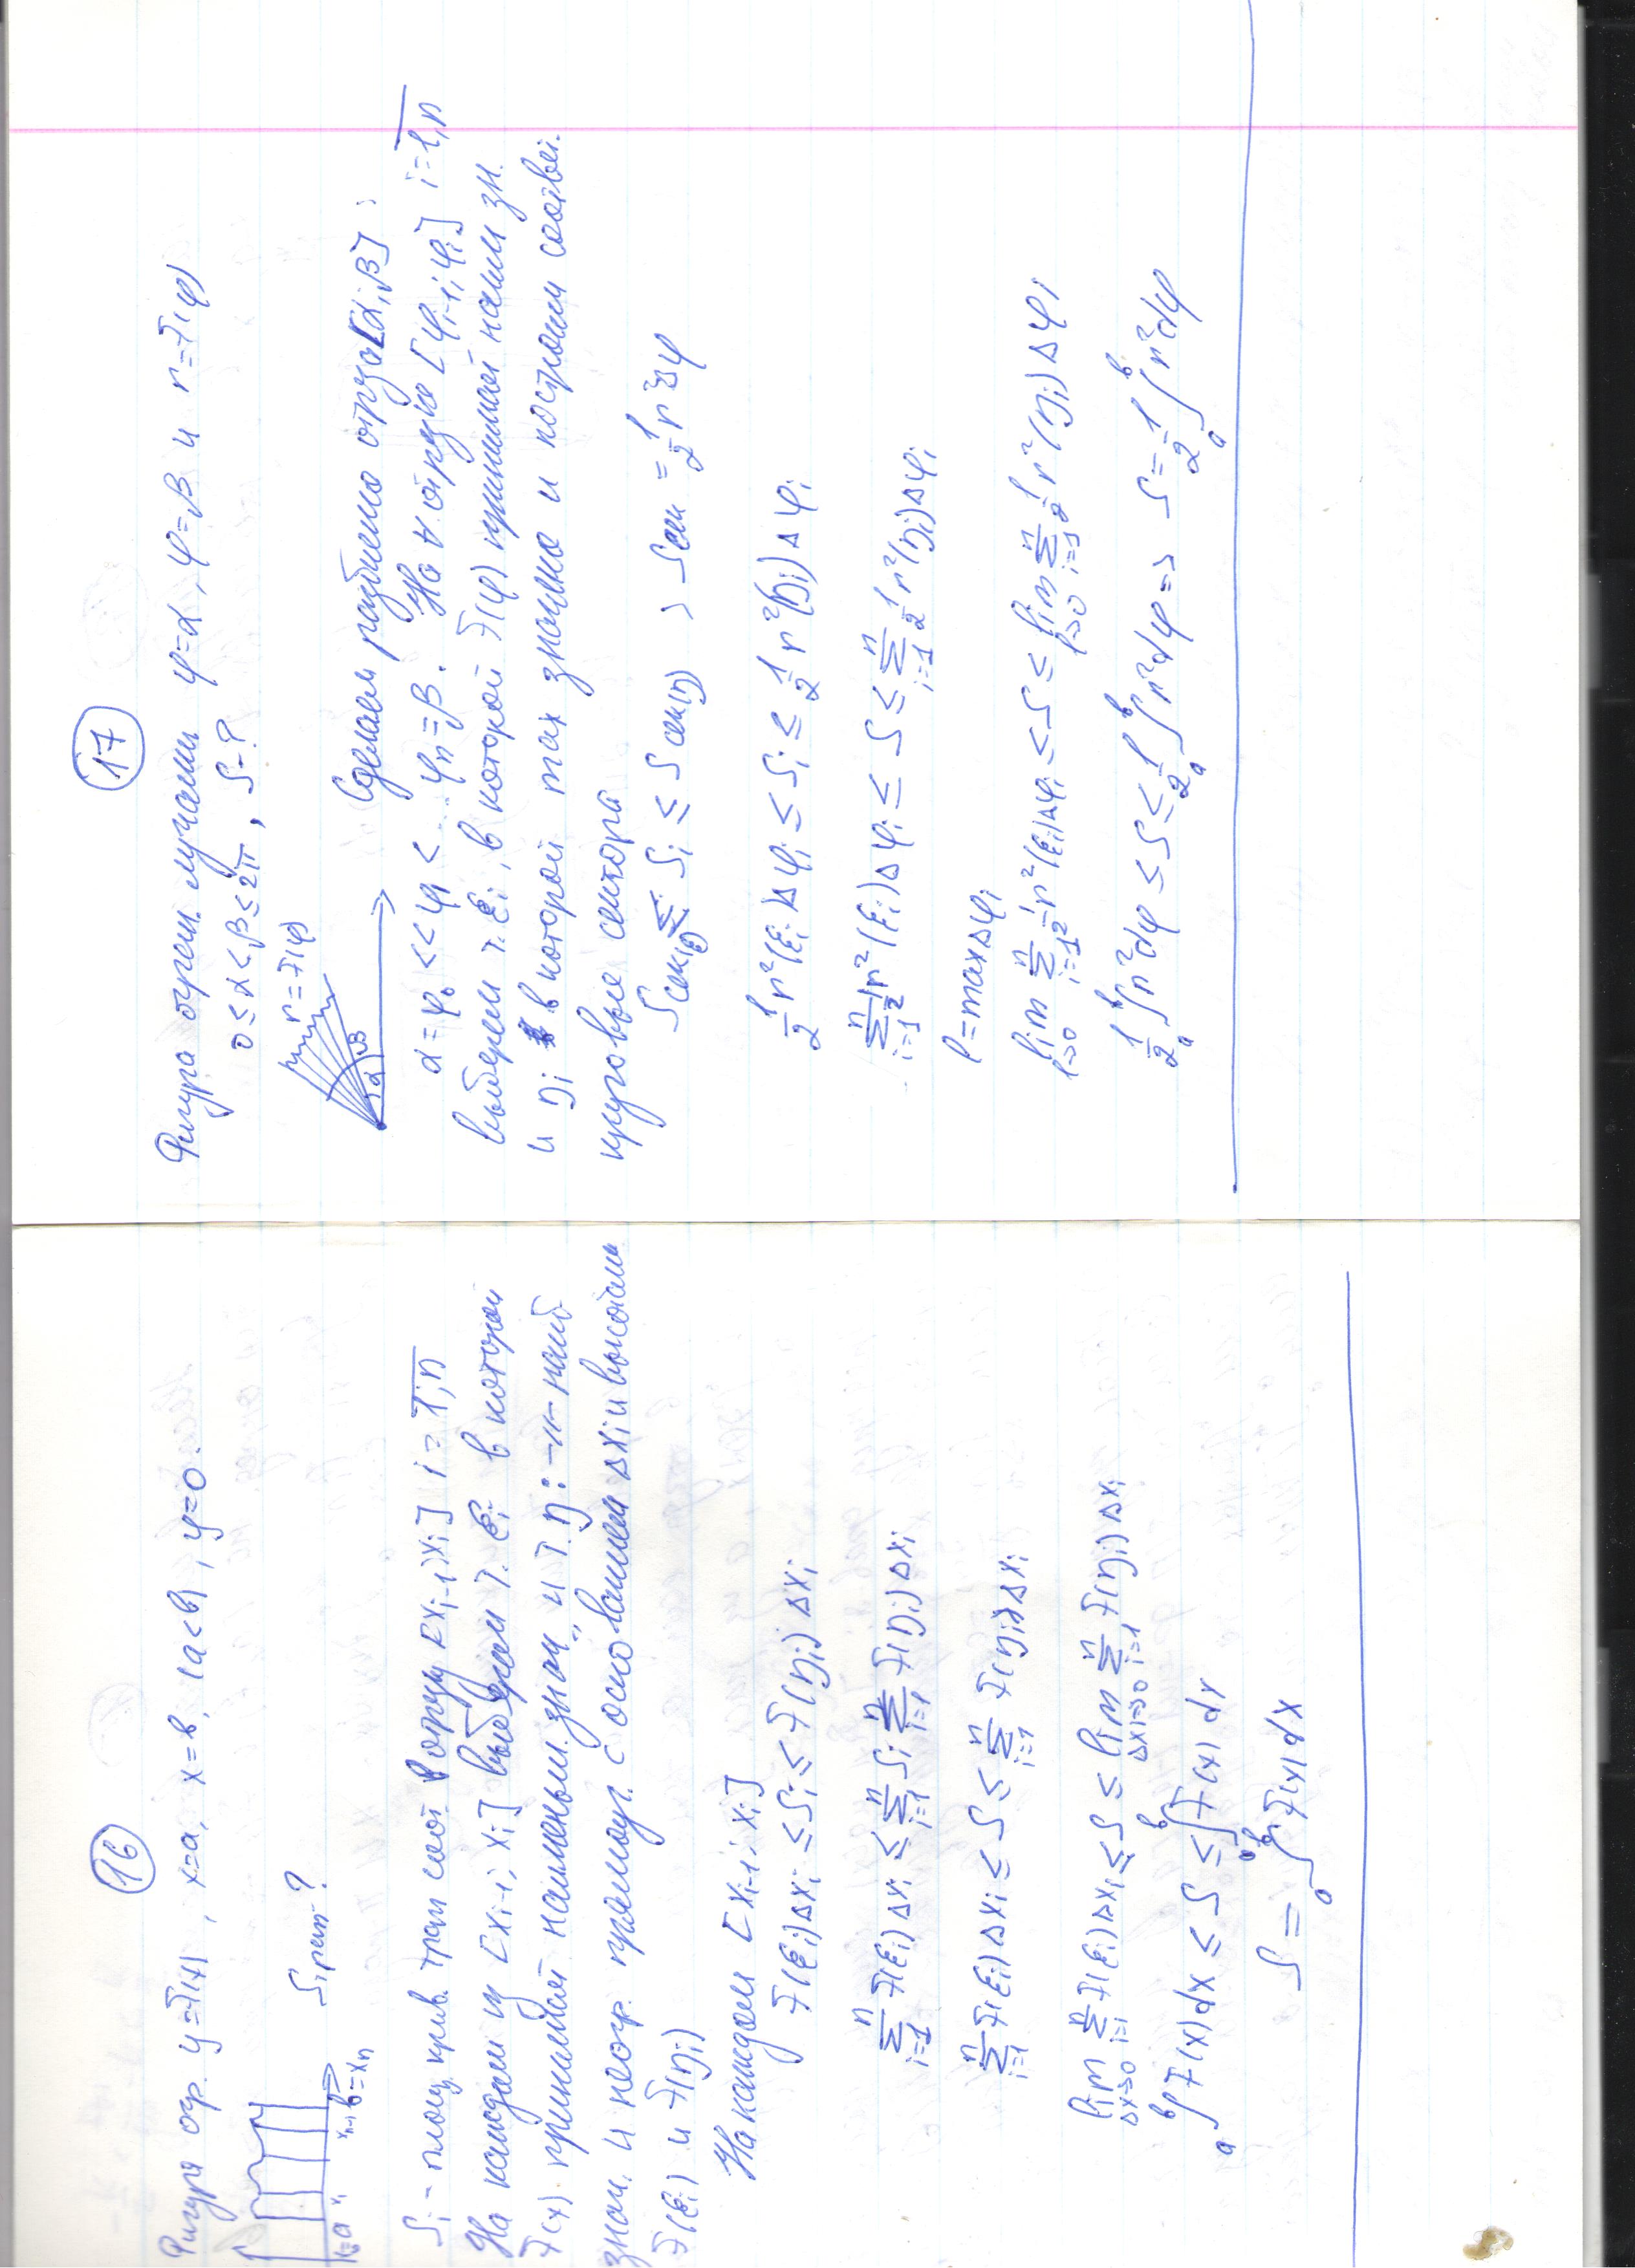 16
Фигура огр. y=f(x), x=a, x=b, (a<b), y=0.
Sтрап-?
x₀=a x₁ xₙ₋₁ b=xₙ
Sᵢ - площ крив. трап соот отрезу [xᵢ₋₁; xᵢ] i=1,n
На каждом из [xᵢ₋₁; xᵢ] выберем т. ξᵢ в которой
f(x) принимает наименьш. знач и т. ηᵢ -"- наиб
знач. и постр. прямоуг. с основанием Δxᵢ и высотами
f(ξᵢ) и f(ηᵢ)
На каждом [xᵢ₋₁; xᵢ]
f(ξᵢ)Δxᵢ ≤ Sᵢ ≤ f(ηᵢ)Δxᵢ
∑ᵢ₌₁ⁿ f(ξᵢ)Δxᵢ ≤ ∑ᵢ₌₁ⁿ Sᵢ ≤ ∑ᵢ₌₁ⁿ f(ηᵢ)Δxᵢ
∑ᵢ₌₁ⁿ f(ξᵢ)Δxᵢ ≤ S ≤ ∑ᵢ₌₁ⁿ f(ηᵢ)Δxᵢ
lim Δx→0 ∑ᵢ₌₁ⁿ f(ξᵢ)Δxᵢ ≤ S ≤ lim Δxᵢ→0 ∑ᵢ₌₁ⁿ f(ηᵢ)Δxᵢ
∫ₐᵇ f(x)dx ≤ S ≤ ∫ₐᵇ f(x)dx
S = ∫ₐᵇ f(x)dx
17
Фигура огран. лучами φ=α, φ=β и r=f(φ)
0≤α<β≤2π, S-?
r=f(φ)
α β
Сделаем разбиение отрезка [α;β]:
α=φ₀<φ₁< ... φₙ=β. На ∀ отрезке [φᵢ₋₁;φᵢ] i=1,n
выберем т. ξᵢ, в которой f(φ) принимает наим зн.
и ηᵢ в которой max значение и построим соответ.
круговые сектора
Sсек(ξ) ≤ Sᵢ ≤ Sсек(η) ; Sсек = 1/2 r²Δφ
1/2 r²(ξᵢ)Δφᵢ ≤ Sᵢ ≤ 1/2 r²(ηᵢ)Δφᵢ
∑ᵢ₌₁ⁿ 1/2 r²(ξᵢ)Δφᵢ ≤ S ≤ ∑ᵢ₌₁ⁿ 1/2 r²(ηᵢ)Δφᵢ
l=maxΔφᵢ
lim l→0 ∑ᵢ₌₁ⁿ 1/2 r²(ξᵢ)Δφᵢ ≤ S ≤ lim l→0 ∑ᵢ₌₁ⁿ 1/2 r²(ηᵢ)Δφᵢ
1/2 ∫ₐᵇ r²dφ ≤ S ≤ 1/2 ∫ₐᵇ r²dφ => S = 1/2 ∫ₐᵇ r²dφ